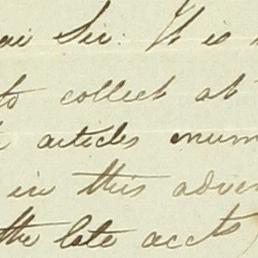 Sir: It is
to collect at
articles enum
in this adver
the late accts)